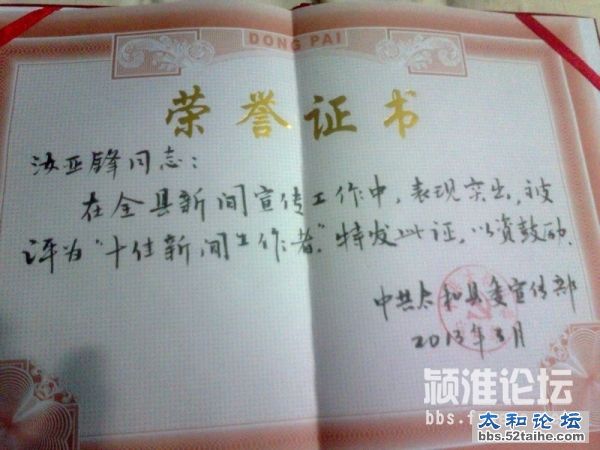 DONG PAI
荣誉证书
汝亚锋同志：
在全县新闻宣传工作中，表现突出，被
评为“十佳新闻工作者”特发此证，以资鼓励.
中共太和县委宣传部
2013年3月
颍淮论坛
bbs.f
太和论坛
bbs.52taihe.com